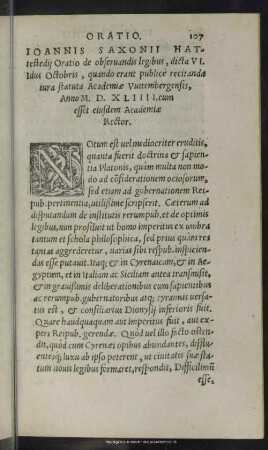 ORATIO. 107
IOANNIS SAXONII HAT
testedij Oratio de obseruandis legibus, dicta VI.
Idus Octobris, quando erant publicè recitanda
iura statuta Academiæ Vuitembergensis,
Anno M. D. XLIIII. cum
esset eiusdem Academiæ
Rector.
NOtum est uel mediocriter eruditis,
quanta fuerit doctrina & sapien
tia Platonis, quim multa non mo
do ad cõsiderationem ociosorum,
sed etiam ad gubernationem Rei
pub. pertinentia, utilissime scripserit. Cæterum ad
disputandum de institutis rerumpub. et de optimis
legibus, non prosiluit ut homo imperitus ex umbra
tantum et schola philosophica, sed prius quàm res
tantas aggrederetur, uarias sibi respub. inspicien-
das esse putauit. Itaq; & in Cyrenaicam, & in Ae-
gyptum, et in Italiam ac Siciliam antea transmisit,
& in grauissimis deliberationibus cum sapientibus
ac rerumpub. gubernatoribus atq; tyrannis uersa-
tus est, & consiliarius Dionysij inferioris fuit.
Quare haudquaquam aut imperitus fuit, aut ex-
pers Reipub. gerendæ. Quod uel illo facto osten-
dit, quòd cum Cyrenæi opibus abundantes, difflu-
entesq; luxu ab ipso peterent, ut ciuitatis suæ sta-
tum nouis legibus formaret, respondit, Difficilimũ
esse,